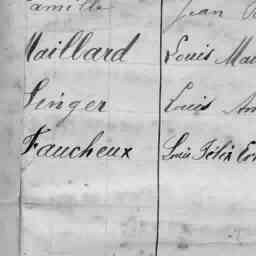 Famille Jean
Maillard Louis
Singer Louis
Faucheux Louis Félix